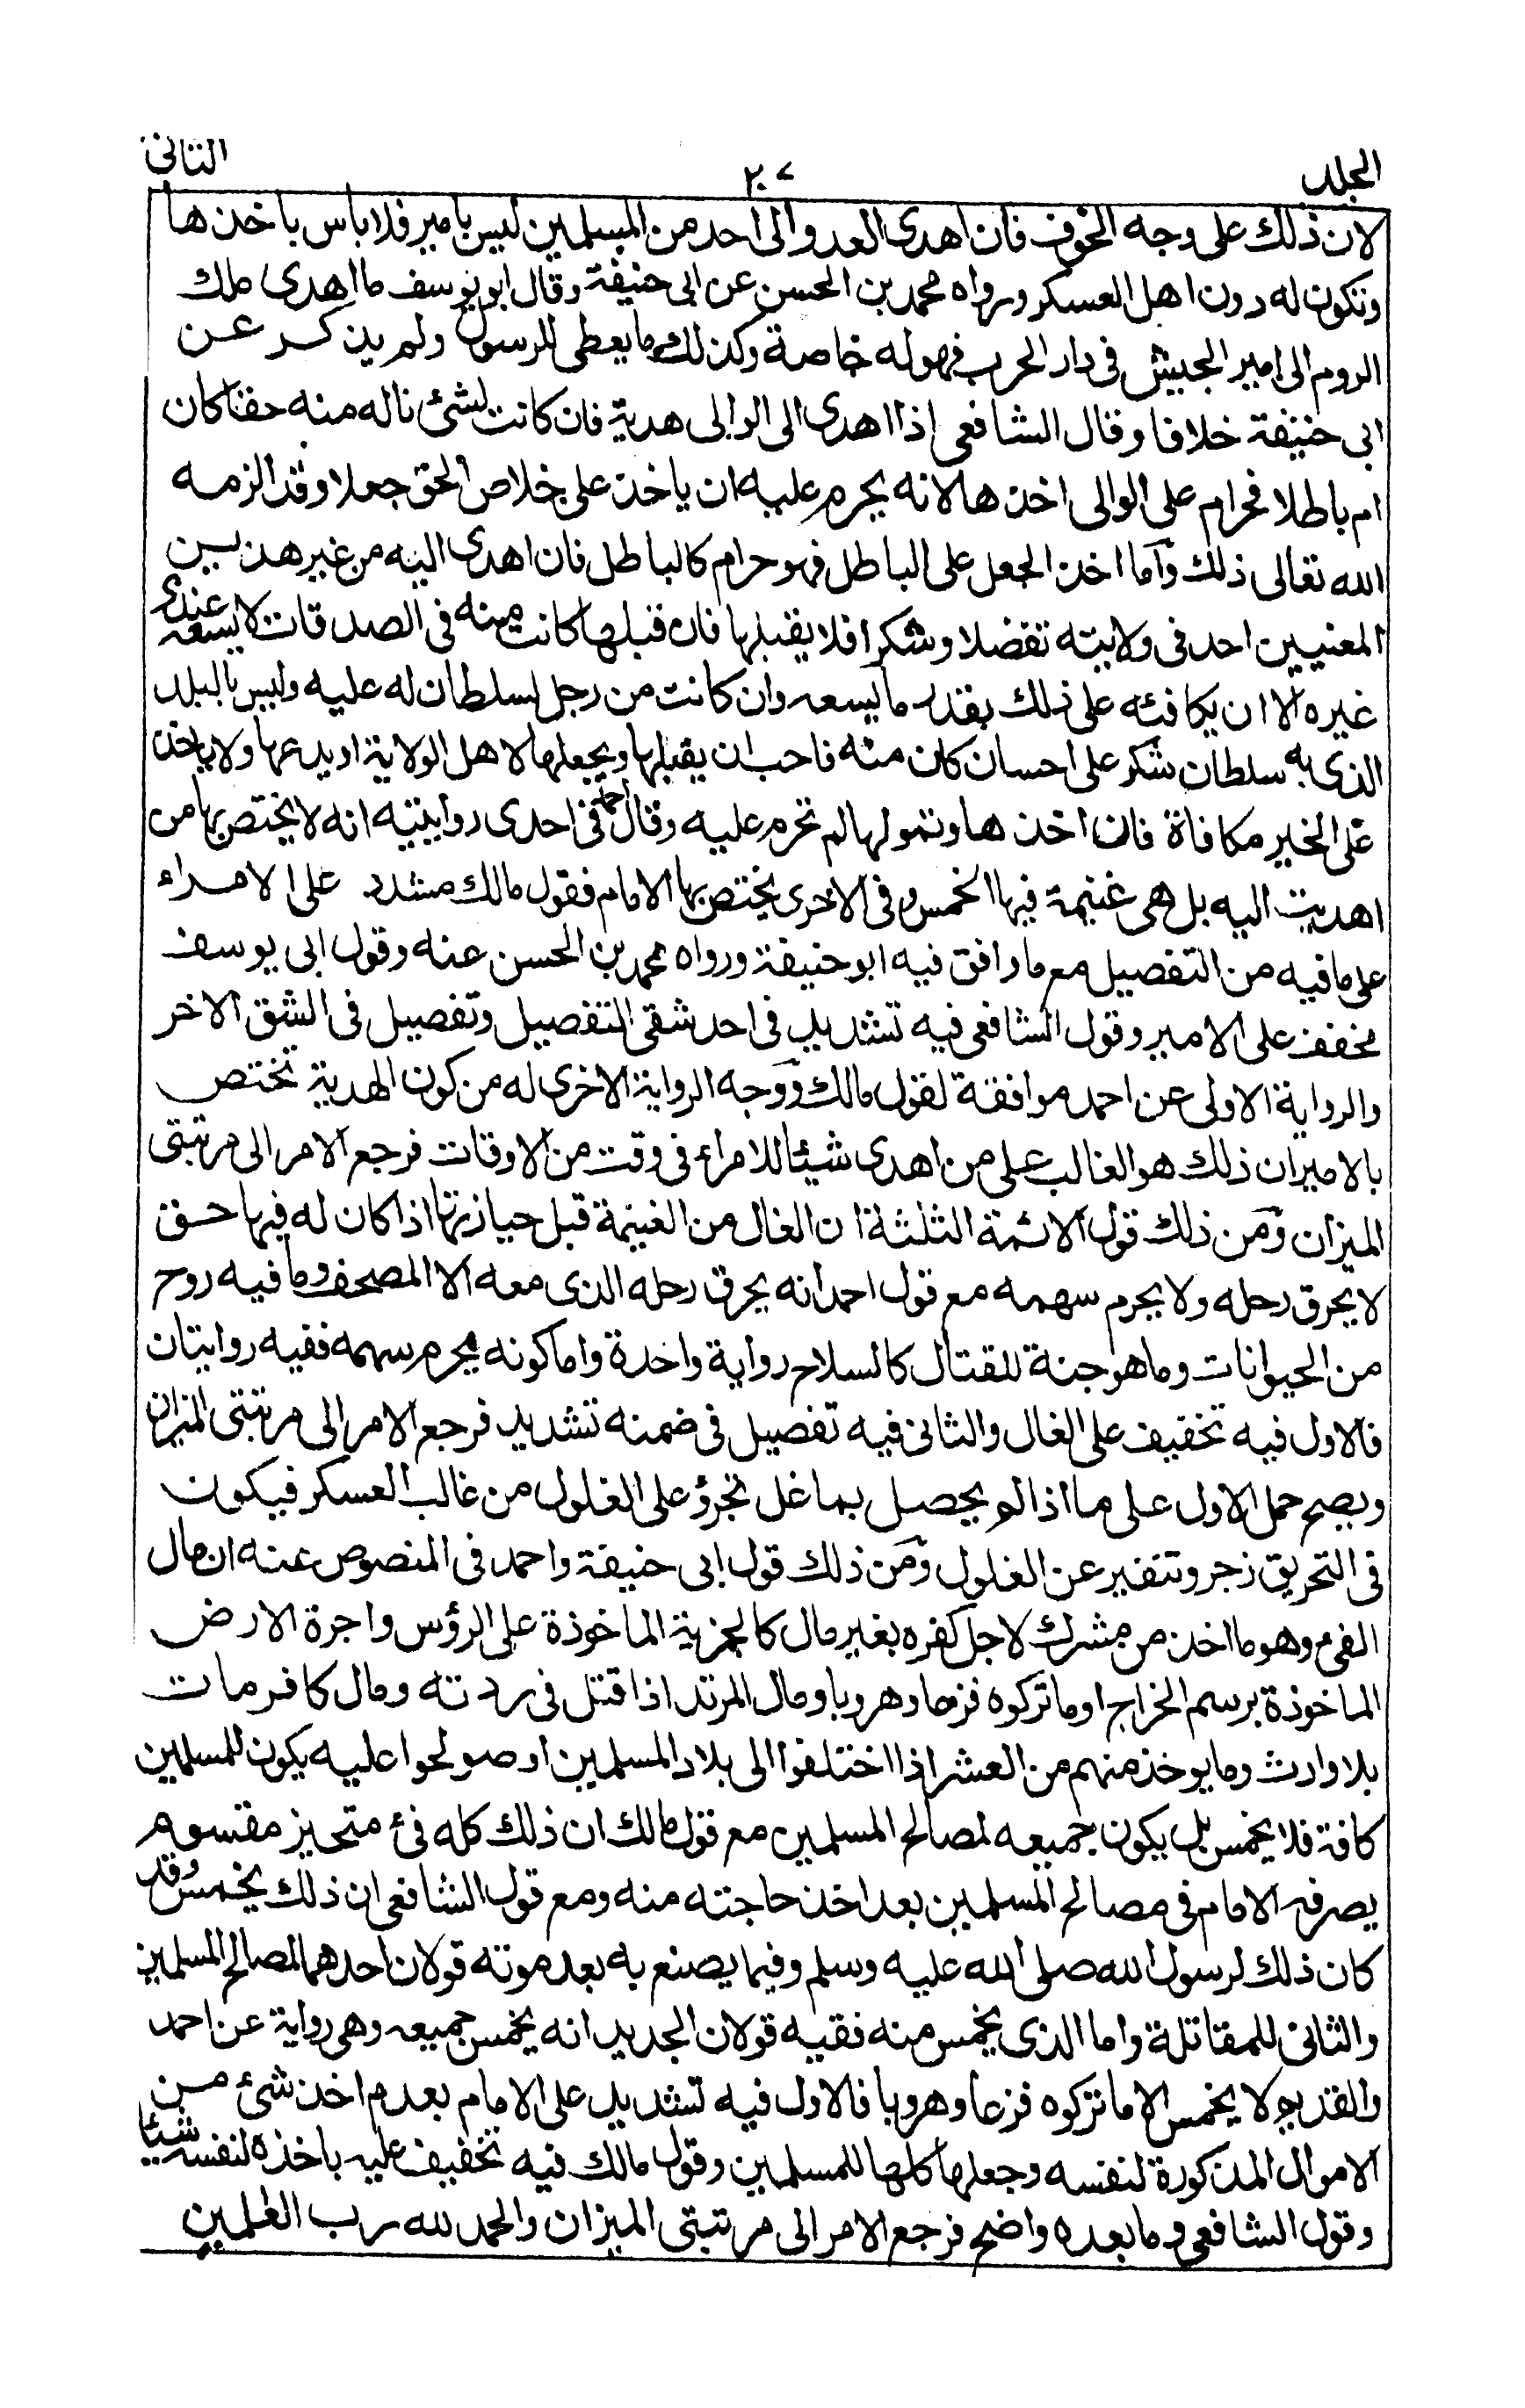 المجلد ٢٠٧ الثانى
لان ذلك على وجه الخوف فان اهدى العدو الى احد من المسلمين ليس بامير فلا باس باخذها
وتكون له دون اهل العسكر ورواه محمد بن الحسن عن ابى حنيفة وقال ابو يوسف ما اهدى ملك
الروم الى امير الجيش فى دار الحرب فهو له خاصة وكذلك ما يعطى للرسول ولم يذكر عن
ابى حنيفة خلافا وقال الشافعى اذا اهدى الى الوالى هدية فان كانت لشئ ناله منه حقا كان
ام باطلا فحرام على الوالى اخذها لانه يحرم عليه ان ياخذ على خلاص الحق جعلا وقد الزمه
الله تعالى ذلك وآما اخذ الجعل على الباطل فهو حرام كالباطل فان اهدى اليه من غير هذين
المعنيين احد فى ولايته تفضلا وشكرا فلا يقبلها فان قبلها كانت منه فى الصدقات لا يسعه عندى
غيره الا ان يكافئه على ذلك بقدر ما يسعه وان كانت من رجل لسلطان له عليه وليس بالبلد
الذى به سلطان شكر على احسان كان منه فاحب ان يقبلها ويجعلها لاهل الولاية او يدعها ولا ياخذ
على الخير مكافاة فان اخذها وتمولها لم تحرم عليه وقال احمد فى احدى روايتيه انه لا يختص بها من
اهديت اليه بل هى غنيمة فيها الخمس وفى الاخرى يختص بها الامام فقول مالك مشدد على الامراء
على ما فيه من التفصيل مع ما وافق فيه ابو حنيفة ورواه محمد بن الحسن عنه وقول ابى يوسف
مخفف على الامير وقول الشافعى فيه تشديد فى احد شقى التفصيل وتفصيل فى الشق الاخر
والرواية الاولى عن احمد موافقة لقول مالك ووجه الرواية الاخرى له من كون الهدية تختص
بالامير ان ذلك هو الغالب على من اهدى شيئا للامراء فى وقت من الاوقات فرجع الامر الى مرتبتى
الميزان ومن ذلك قول الائمة الثلثة ان الغال من الغنيمة قبل حيازتها اذا كان له فيها حق
لا يحرق رحله ولا يحرم سهمه مع قول احمد انه يحرق رحله الذى معه الا المصحف وما فيه روح
من الحيوانات وما هو جنة للقتال كالسلاح رواية واحدة واما كونه يحرم سهمه ففيه روايتان
فالاول فيه تخفيف على الغال والثانى فيه تفصيل فى ضمنه تشديد فرجع الامر الى مرتبتى الميزان
ويصح حمل الاول على ما اذا لم يحصل بما غل تجرؤ على الغلول من غالب العسكر فيكون
فى التحريق زجر وتنفير عن الغلول ومن ذلك قول ابى حنيفة واحمد فى المنصوص عنه ان مال
الفئ وهو ما اخذ من مشرك لاجل كفره بغير مال كالجزية الماخوذة على الرؤس واجرة الارض
الماخوذة برسم الخراج او ما تركوه فزعا وهروبا ومال المرتد اذا قتل فى ردته ومال كافر مات
بلا وارث وما يوخذ منهم من العشر اذا اختلفوا الى بلاد المسلمين او صولحوا عليه يكون للمسلمين
كافة فلا يخمس بل يكون جميعه لمصالح المسلمين مع قول مالك ان ذلك كله فئ متحيز مقسوم
يصرفه الامام فى مصالح المسلمين بعد اخذ حاجته منه ومع قول الشافعى ان ذلك يخمس وقد
كان ذلك لرسول الله صلى الله عليه وسلم وفيما يصنع به بعد موته قولان احدهما لمصالح المسلمين
والثانى للمقاتلة واما الذى يخمس منه ففيه قولان الجديد انه يخمس جميعه وهى رواية عن احمد
والقديم لا يخمس الا ما تركوه فزعا وهروبا فالاول فيه تشديد على الامام بعدم اخذ شئ من
الاموال المذكورة لنفسه وجعلها كلها للمسلمين وقول مالك فيه تخفيف عليه باخذه لنفسه شيئا
وقول الشافعى وما بعده واضح فرجع الامر الى مرتبتى الميزان والحمد لله رب العلمين